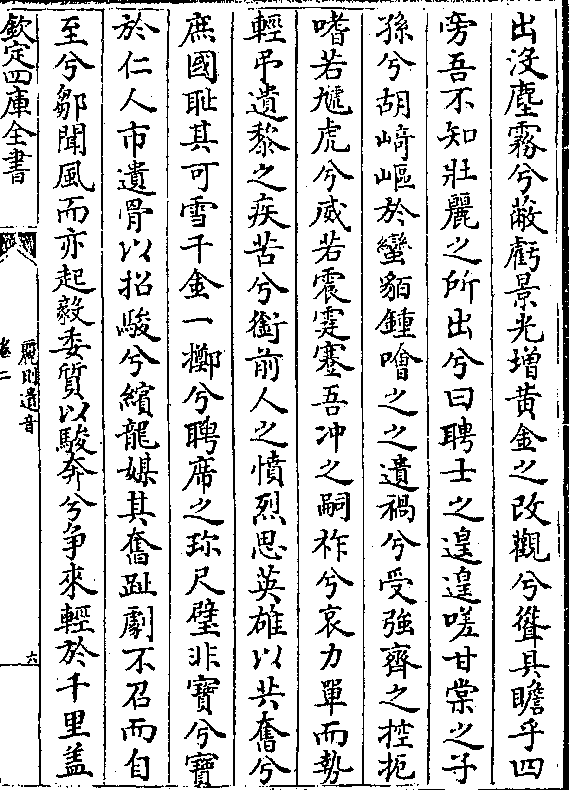 出沒塵霧兮蔽虧景光增黃金之改觀兮聳具瞻乎四
旁吾不知壯麗之所出兮曰聘士之遑遑嗟甘棠之子
孫兮胡﨑嶇於蠻貊鍾噲之之遺禍兮受強齊之控扼
嗜若虓虎兮威若震霆蹇吾冲之嗣祚兮哀力單而勢
輕弔遺黎之疾苦兮銜前人之憤烈思英雄以共奮兮
庶國耻其可雪千金一擲兮聘席之珍尺璧非寶兮寶
於仁人市遺骨以招駿兮繽龍媒其奮趾劇不召而自
至兮鄒聞風而亦起毅委質以駿奔兮争來輕於千里盖
欽定四庫全書
麗則遺音
卷二
六